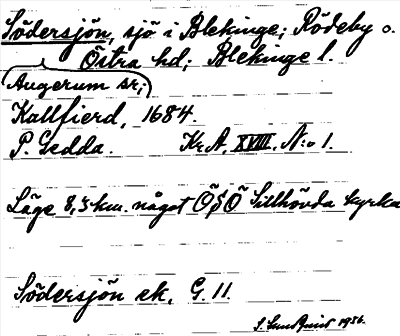 Södersjön, sjö i Blekinge; Rödeby o.
Östra hd; Blekinge l.
Augerum sr;
Kallfierd, 1684.
P. Gedda. Kr.A. XVIII, N:o 1.
Läge 8,5 km. något ÖSÖ Sillhövda kyrka
Södersjön ek. G. 11.
S. Sundquist 1936.